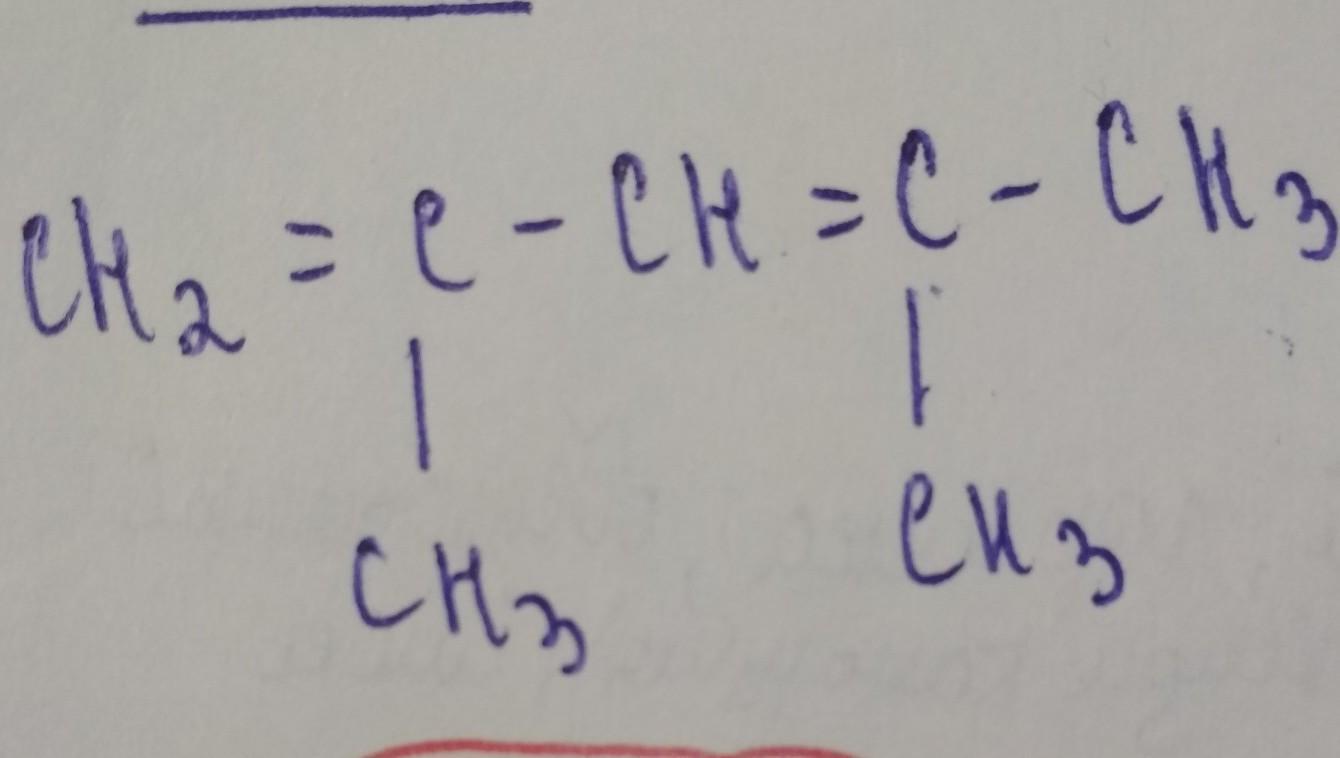 CH2 = C - CH = C - CH3
| |
CH3 CH3